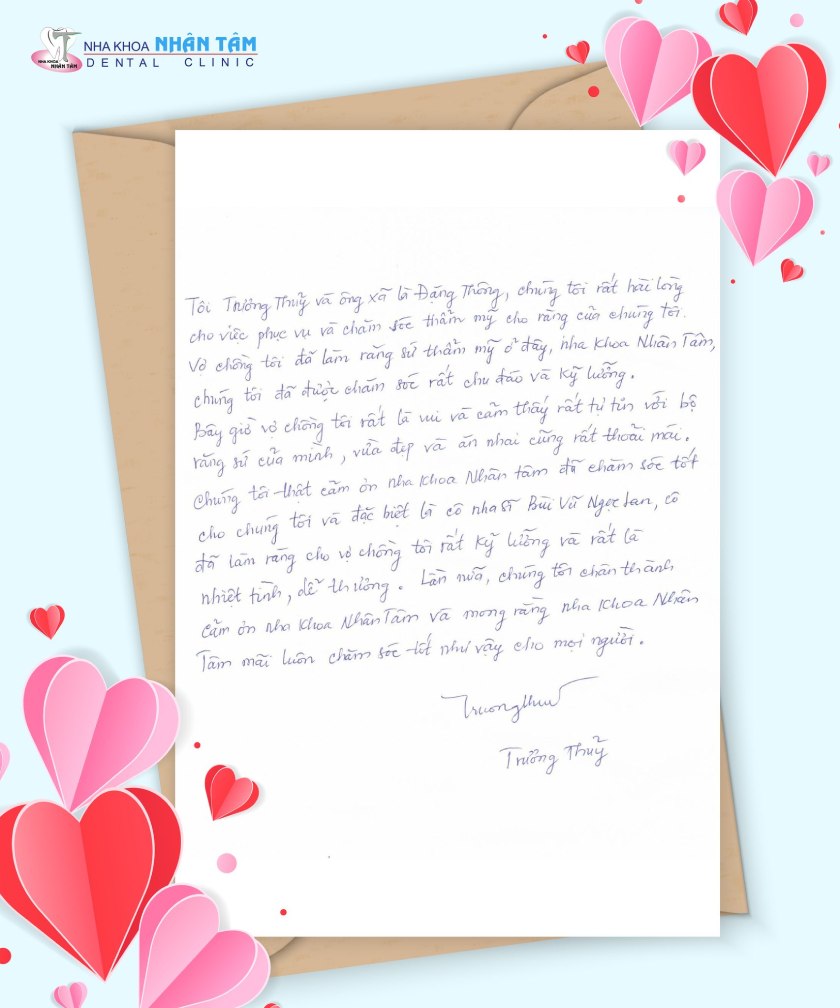 NHA KHOA NHÂN TÂM
DENTAL CLINIC
NHA KHOA
NHÂN TÂM
Tôi Trưởng Thuỹ và ông xã là Đặng Thông, chúng tôi rất hài lòng
cho việc phục vụ và chăm sóc thẩm mỹ cho răng của chúng tôi.
Vợ chồng tôi đã làm răng sứ thẩm mỹ ở đây, nha khoa Nhân Tâm,
chúng tôi đã được chăm sóc rất chu đáo và kỹ lưỡng.
Bây giờ vợ chồng tôi rất là vui và cảm thấy rất tự tin với bộ
răng sứ của mình, vừa đẹp và ăn nhai cũng rất thoải mái.
Chúng tôi thật cảm ơn nha khoa Nhân tâm đã chăm sóc tốt
cho chúng tôi và đặc biệt là cô nha sĩ Bùi Vũ Ngọc Lan, cô
đã làm răng cho vợ chồng tôi rất kỹ lưỡng và rất là
nhiệt tình, dễ thương. Lần nữa, chúng tôi chân thành
cảm ơn nha khoa Nhân Tâm và mong rằng nha khoa Nhân
Tâm mãi luôn chăm sóc tốt như vậy cho mọi người.
Trưởng Thuỹ